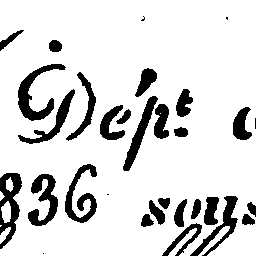 Dépt
836 sous